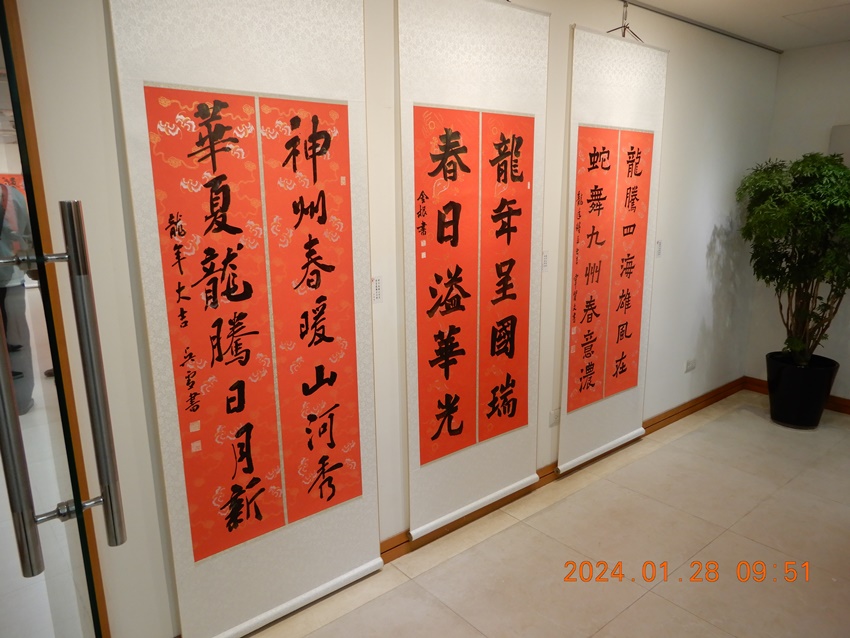 龍騰四海雄風在
蛇舞九州春意濃
龍年呈國瑞
春日溢華光
金銀書
神州春暖山河秀
華夏龍騰日月新
龍年大吉 吳雪書
2024.01.28 09:51